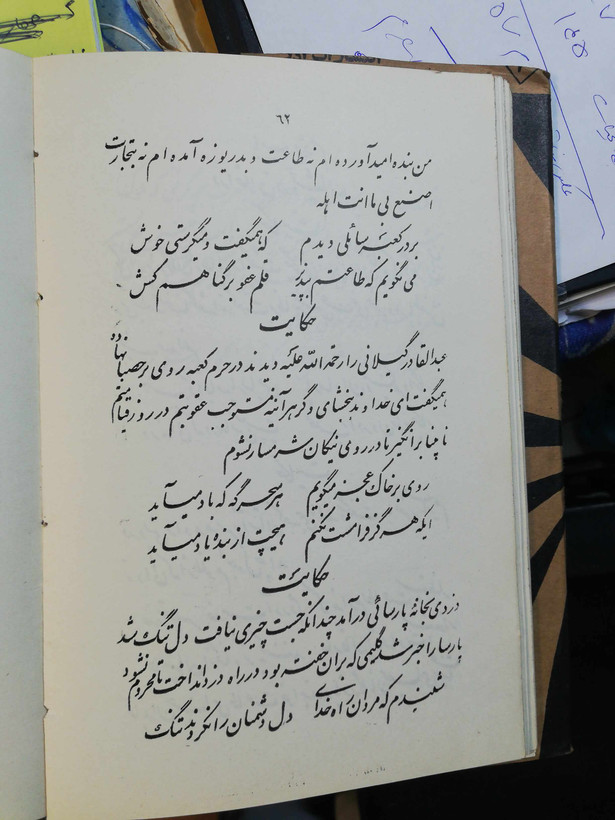 ٦٢
من بنده امید آورده ام نه طاعت و بدریوزه آمده ام نه بتجارت
اصنع بی ما انت اهله
بر در کعبه سائلی دیدم که همیگفت و میگرستی خوش
می نگویم که طاعتم بپذیر قلم عفو بر گناهم کش
حکایت
عبدالقادر گیلانی را رحمة الله علیه دیدند در حرم کعبه روی بر حصبا نهاده
همیگفت ای خداوند ببخشای و گر هر آینه مستوجب عقوبتم در روز قیامتم
نابینا برانگیز تا در روی نیکان شرمسار نشوم
روی بر خاک عجز میگویم هر سحرگه که باد میآید
ایکه هرگز فرامشت نکنم هیچت از بنده یاد میآید
حکایت
دزدی بخانهٔ پارسائی درآمد چندانکه جست چیزی نیافت دل تنگ شد
پارسا را خبر شد گلیمی که بر آن خفته بود در راه دزد انداخت تا محروم نشود
شنیدم که مردان راه خدای دل دشمنان را نکردند تنگ